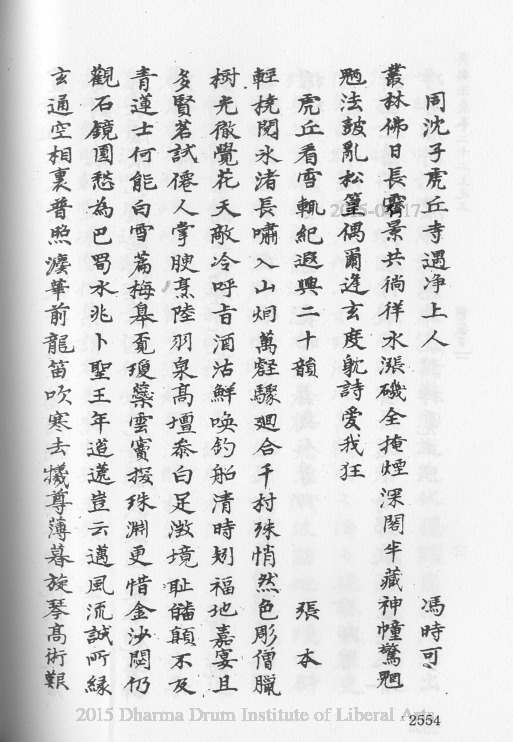 同沈子虎丘寺遇净上人　馮時可
叢林佛日長霽景共徜徉水漲磯全掩煙深閣半藏神幢驚魍
魎法鼓亂松篁偶爾逢玄度躭詩愛我狂
虎丘看雪輒紀遐興二十韻　張本
輕橈閱氷渚長嘯入山烱萬壑驟廻合千村殊悄然色彫僧臘
樹光徹覺花天敵冷呼盲酒沽鮮喚釣船清時矧福地嘉宴且
多賢茗試僊人掌腴烹陸羽泉高壇忝白足澂境耻皤顛不及
青蓮士何能白雪篇梅皋覓瓊蘂雲竇授珠淵更惜金沙閟仍
觀石鏡圓愁為巴蜀水兆卜聖王年道邈豈云邁風流誠所緣
玄通空相裏普照瓊華前龍笛吹寒去犧尊薄暮旋琴高術艱
2015 Dharma Drum Institute of Liberal Arts
2554